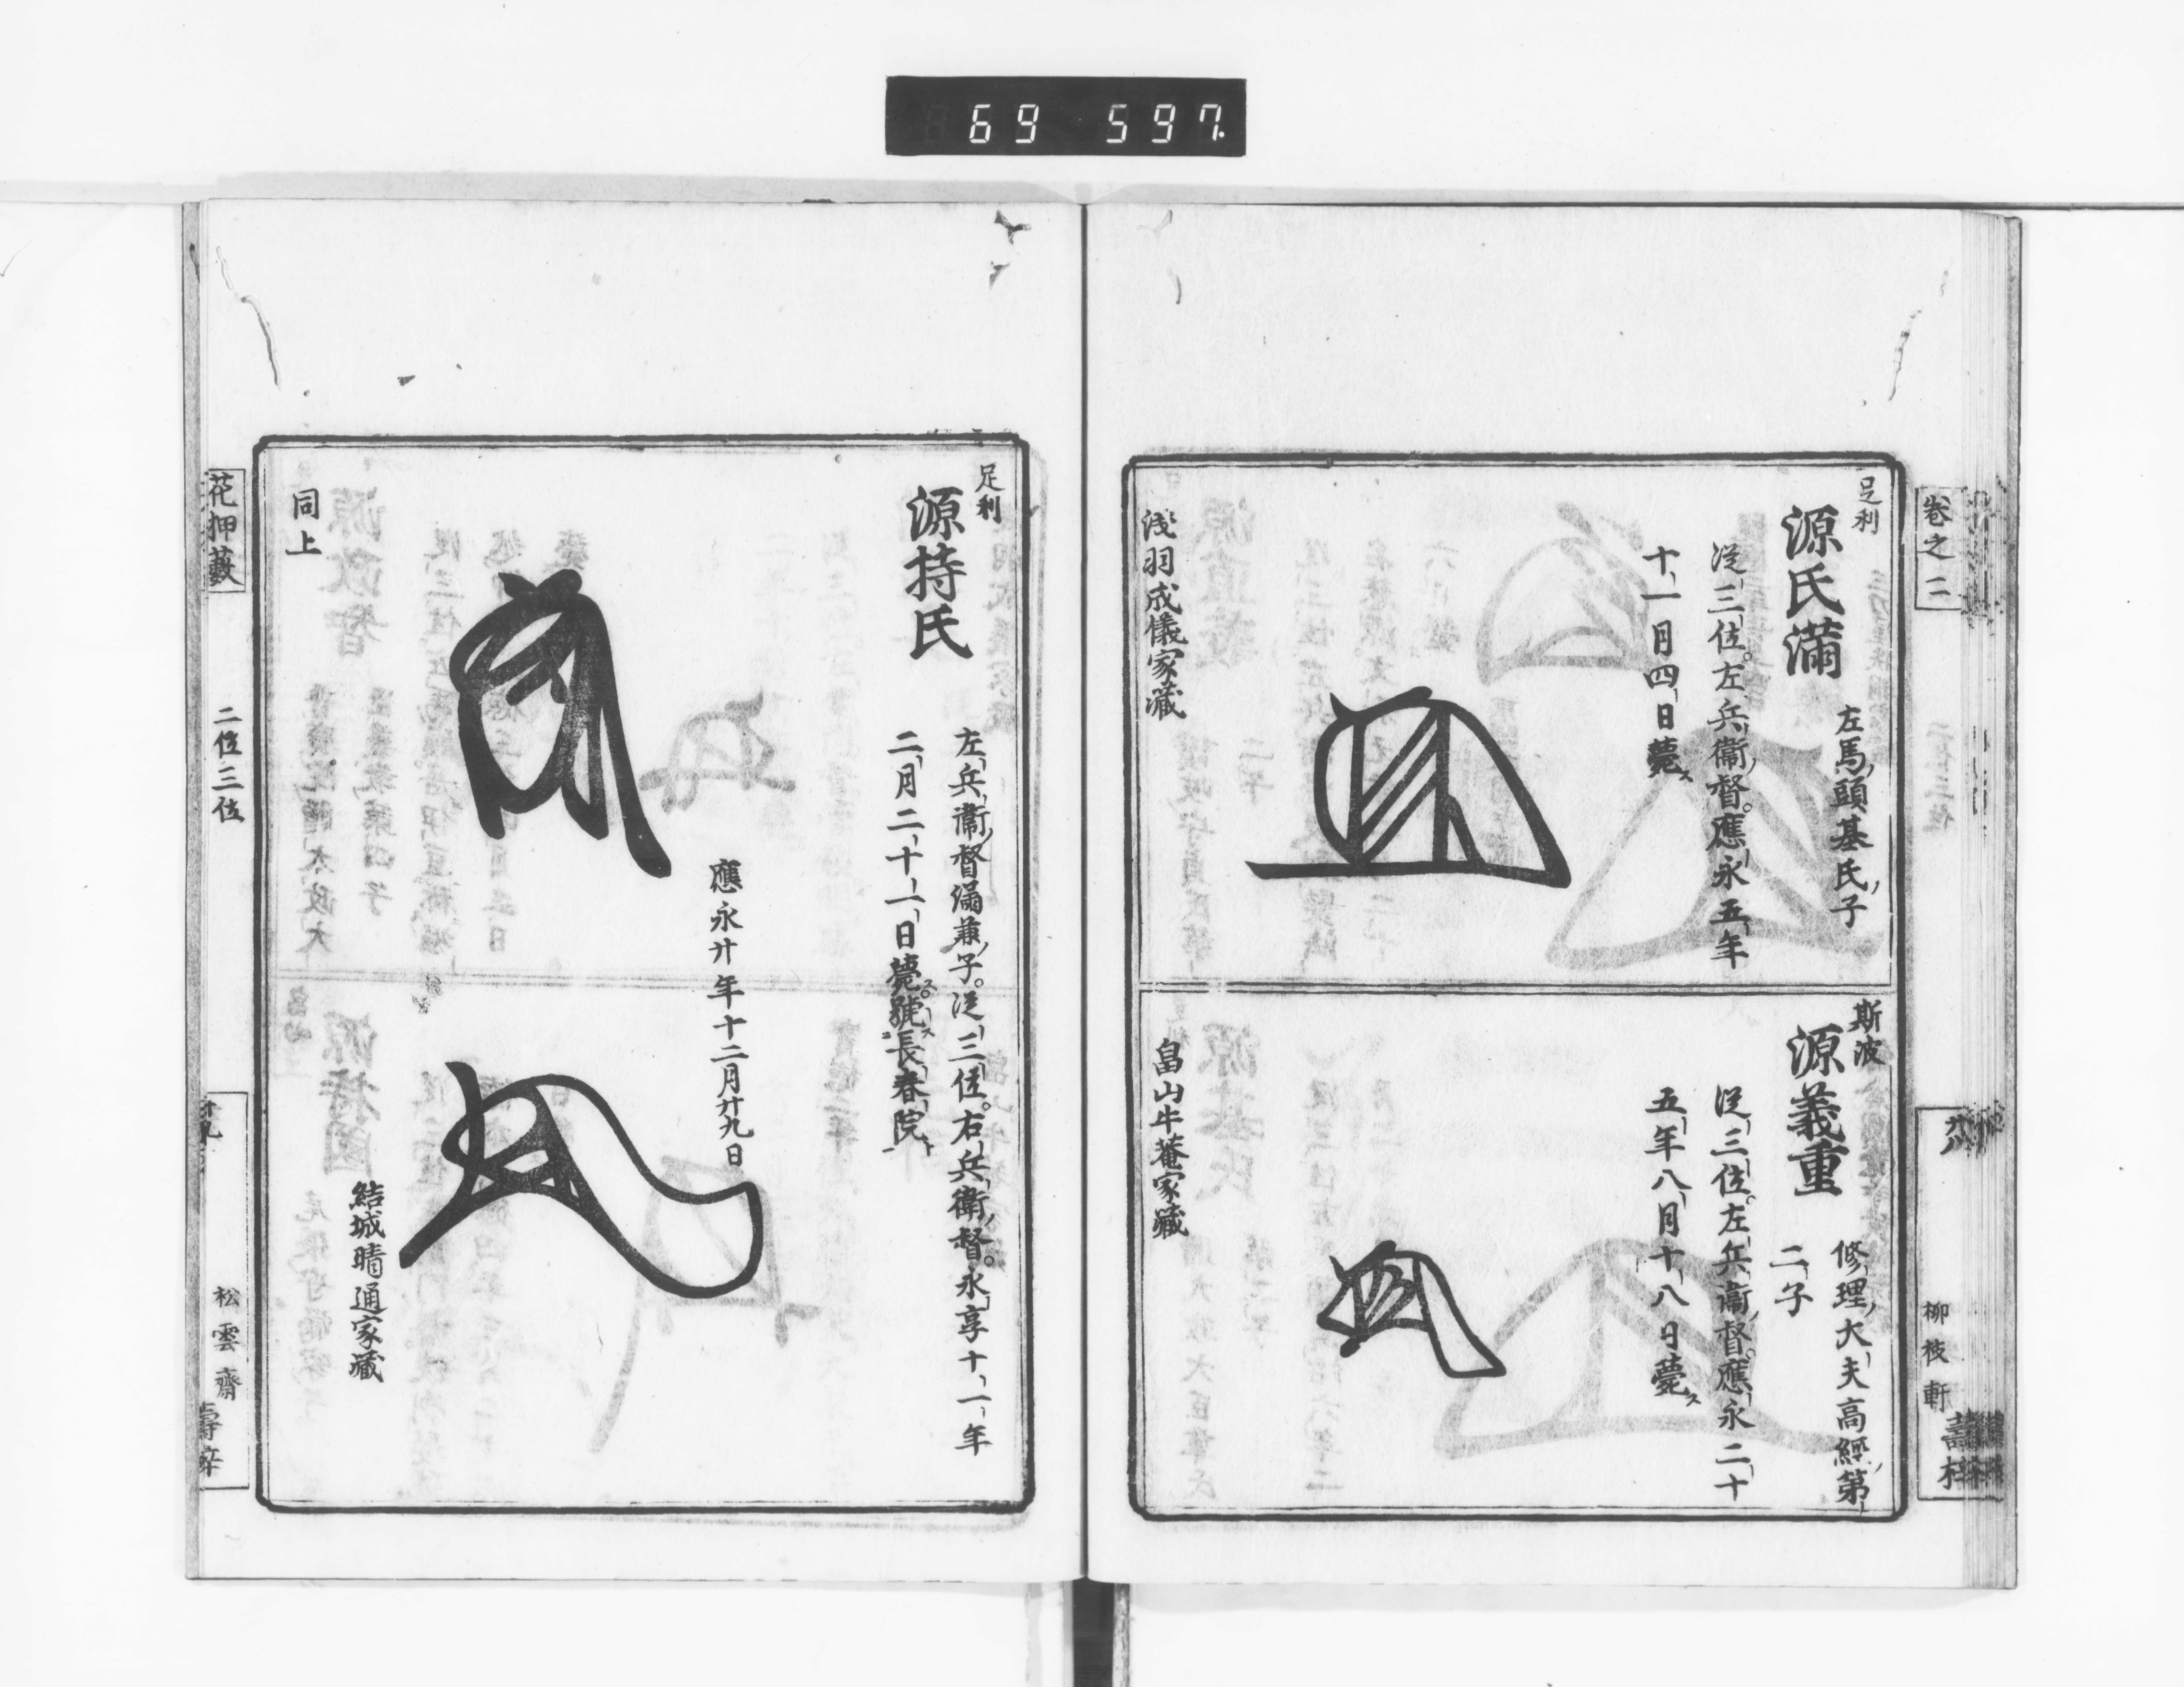 69 597.
卷之二
柳枝軒
足利
源氏滿
左馬頭基氏子
從三位。左兵衞督。應永五年
十一月四日薨ス
淺羽成儀家藏
斯波
源義重
修理大夫高經第
二子
從三位。左兵衞督。應永二十
五年八月十八日薨ス
畠山牛菴家藏
足利
源持氏
左兵衞督滿兼子。從三位。右兵衞督。永享十一年
二月二十一日薨ス。號ス長春院ト
應永廿年十二月廿九日
同上
結城晴通家藏
花押藪
二位三位
松雲齋